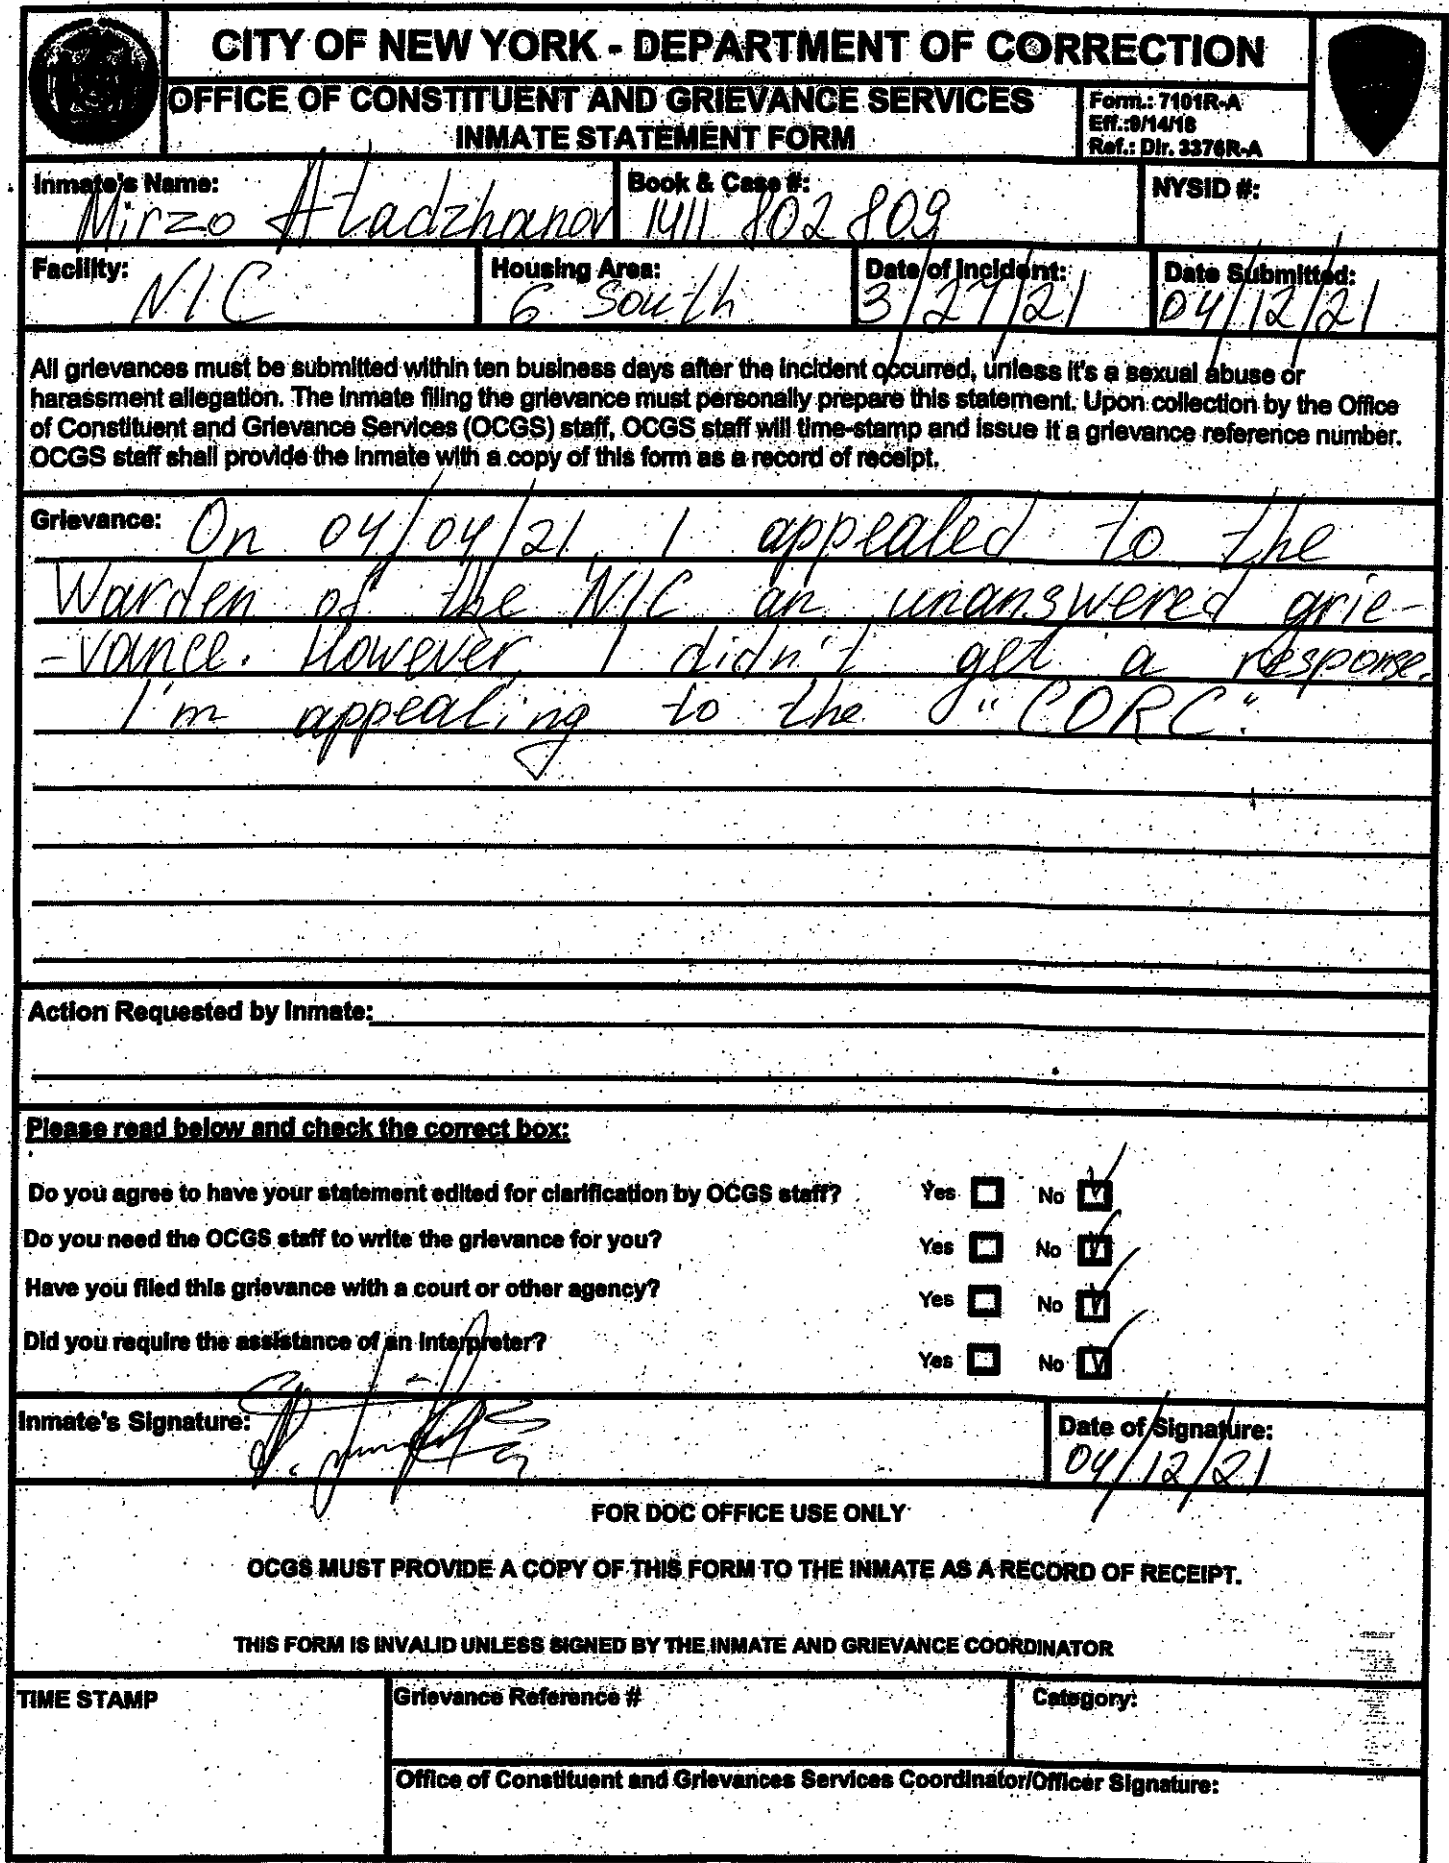 CITY OF NEW YORK - DEPARTMENT OF CORRECTION
OFFICE OF CONSTITUENT AND GRIEVANCE SERVICES
INMATE STATEMENT FORM
Form.: 7101R-A
Eff.:9/14/18
Ref.: Dir. 3376R-A
Inmate's Name: Mirzo Atadzhanov
Book & Case #: 1411 802 809
NYSID #:
Facility: NIC
Housing Area: 6 South
Date of Incident: 3/27/21
Date Submitted: 04/12/21
All grievances must be submitted within ten business days after the incident occurred, unless it's a sexual abuse or
harassment allegation. The inmate filing the grievance must personally prepare this statement. Upon collection by the Office
of Constituent and Grievance Services (OCGS) staff, OCGS staff will time-stamp and issue it a grievance reference number.
OCGS staff shall provide the inmate with a copy of this form as a record of receipt.
Grievance: On 04/04/21, I appealed to the
Warden of the NIC an unanswered grie-
-vance. However, I didn't get a response.
I'm appealing to the "CORC".
Action Requested by Inmate:
Please read below and check the correct box:
Do you agree to have your statement edited for clarification by OCGS staff? Yes No
Do you need the OCGS staff to write the grievance for you? Yes No
Have you filed this grievance with a court or other agency? Yes No
Did you require the assistance of an interpreter? Yes No
Inmate's Signature:
Date of Signature: 04/12/21
FOR DOC OFFICE USE ONLY
OCGS MUST PROVIDE A COPY OF THIS FORM TO THE INMATE AS A RECORD OF RECEIPT.
THIS FORM IS INVALID UNLESS SIGNED BY THE INMATE AND GRIEVANCE COORDINATOR
TIME STAMP
Grievance Reference #
Category:
Office of Constituent and Grievances Services Coordinator/Officer Signature: